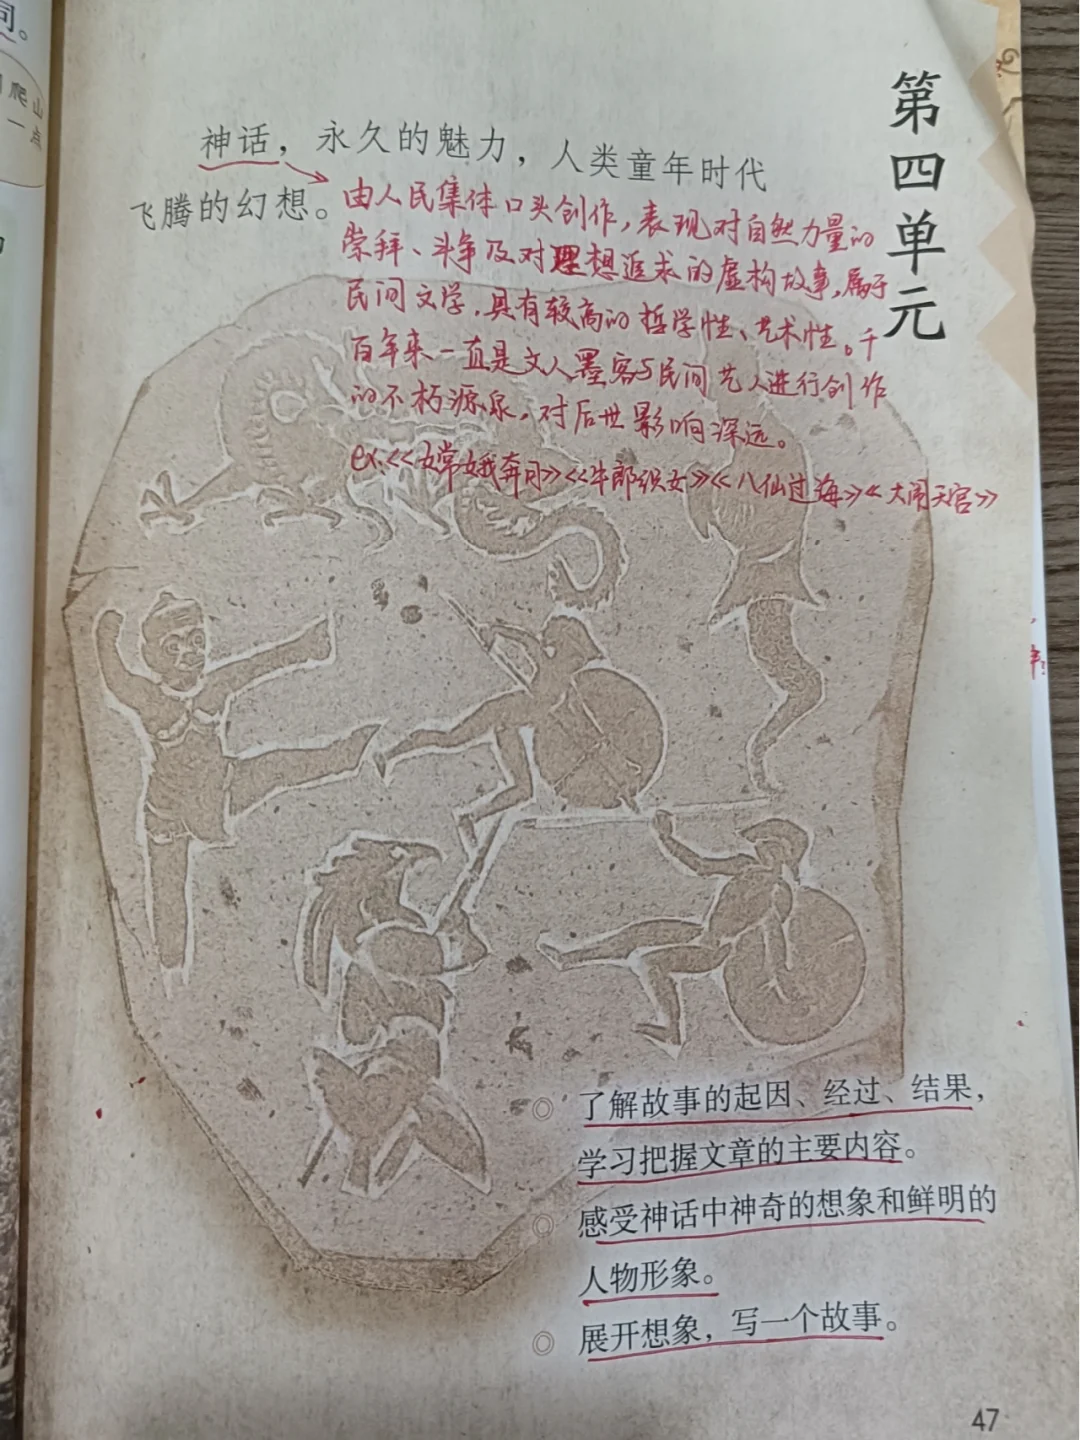 第四单元
神话，永久的魅力，人类童年时代
飞腾的幻想。
由人民集体口头创作，表现对自然力量的
崇拜、斗争及对理想追求的虚构故事，属于
民间文学，具有较高的哲学性、艺术性。千
百年来一直是文人墨客与民间艺人进行创作
的不朽源泉，对后世影响深远。
ex.《嫦娥奔月》《牛郎织女》《八仙过海》《大闹天宫》
了解故事的起因、经过、结果，
学习把握文章的主要内容。
感受神话中神奇的想象和鲜明的
人物形象。
展开想象，写一个故事。
47
词。
爬山
一点